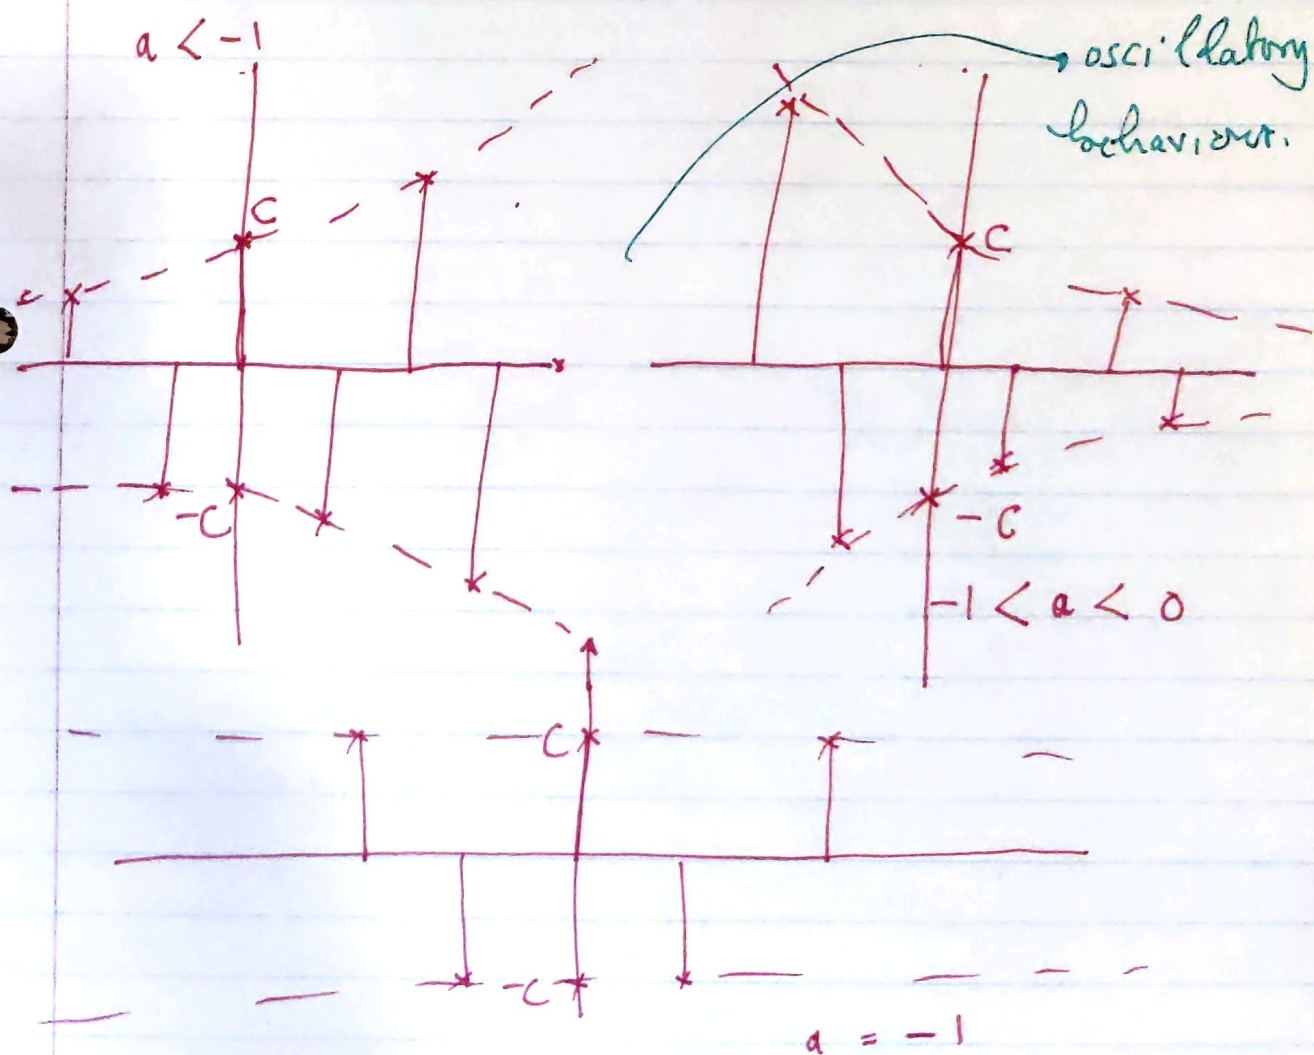 a < -1
oscillatory
behaviour.
C
C
-C
-C
-1 < a < 0
C
-C
a = -1